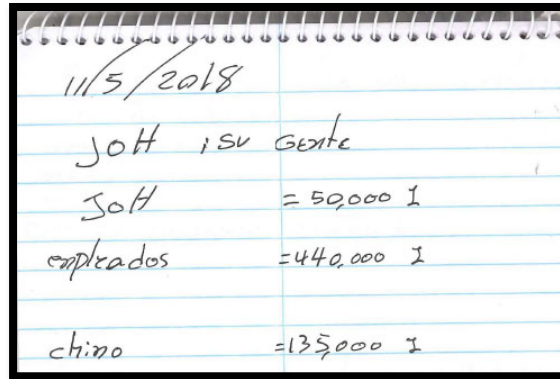 11/5/2018
JOH i su Gente
JOH = 50,000 I
empleados =440,000 I
chino =135,000 I